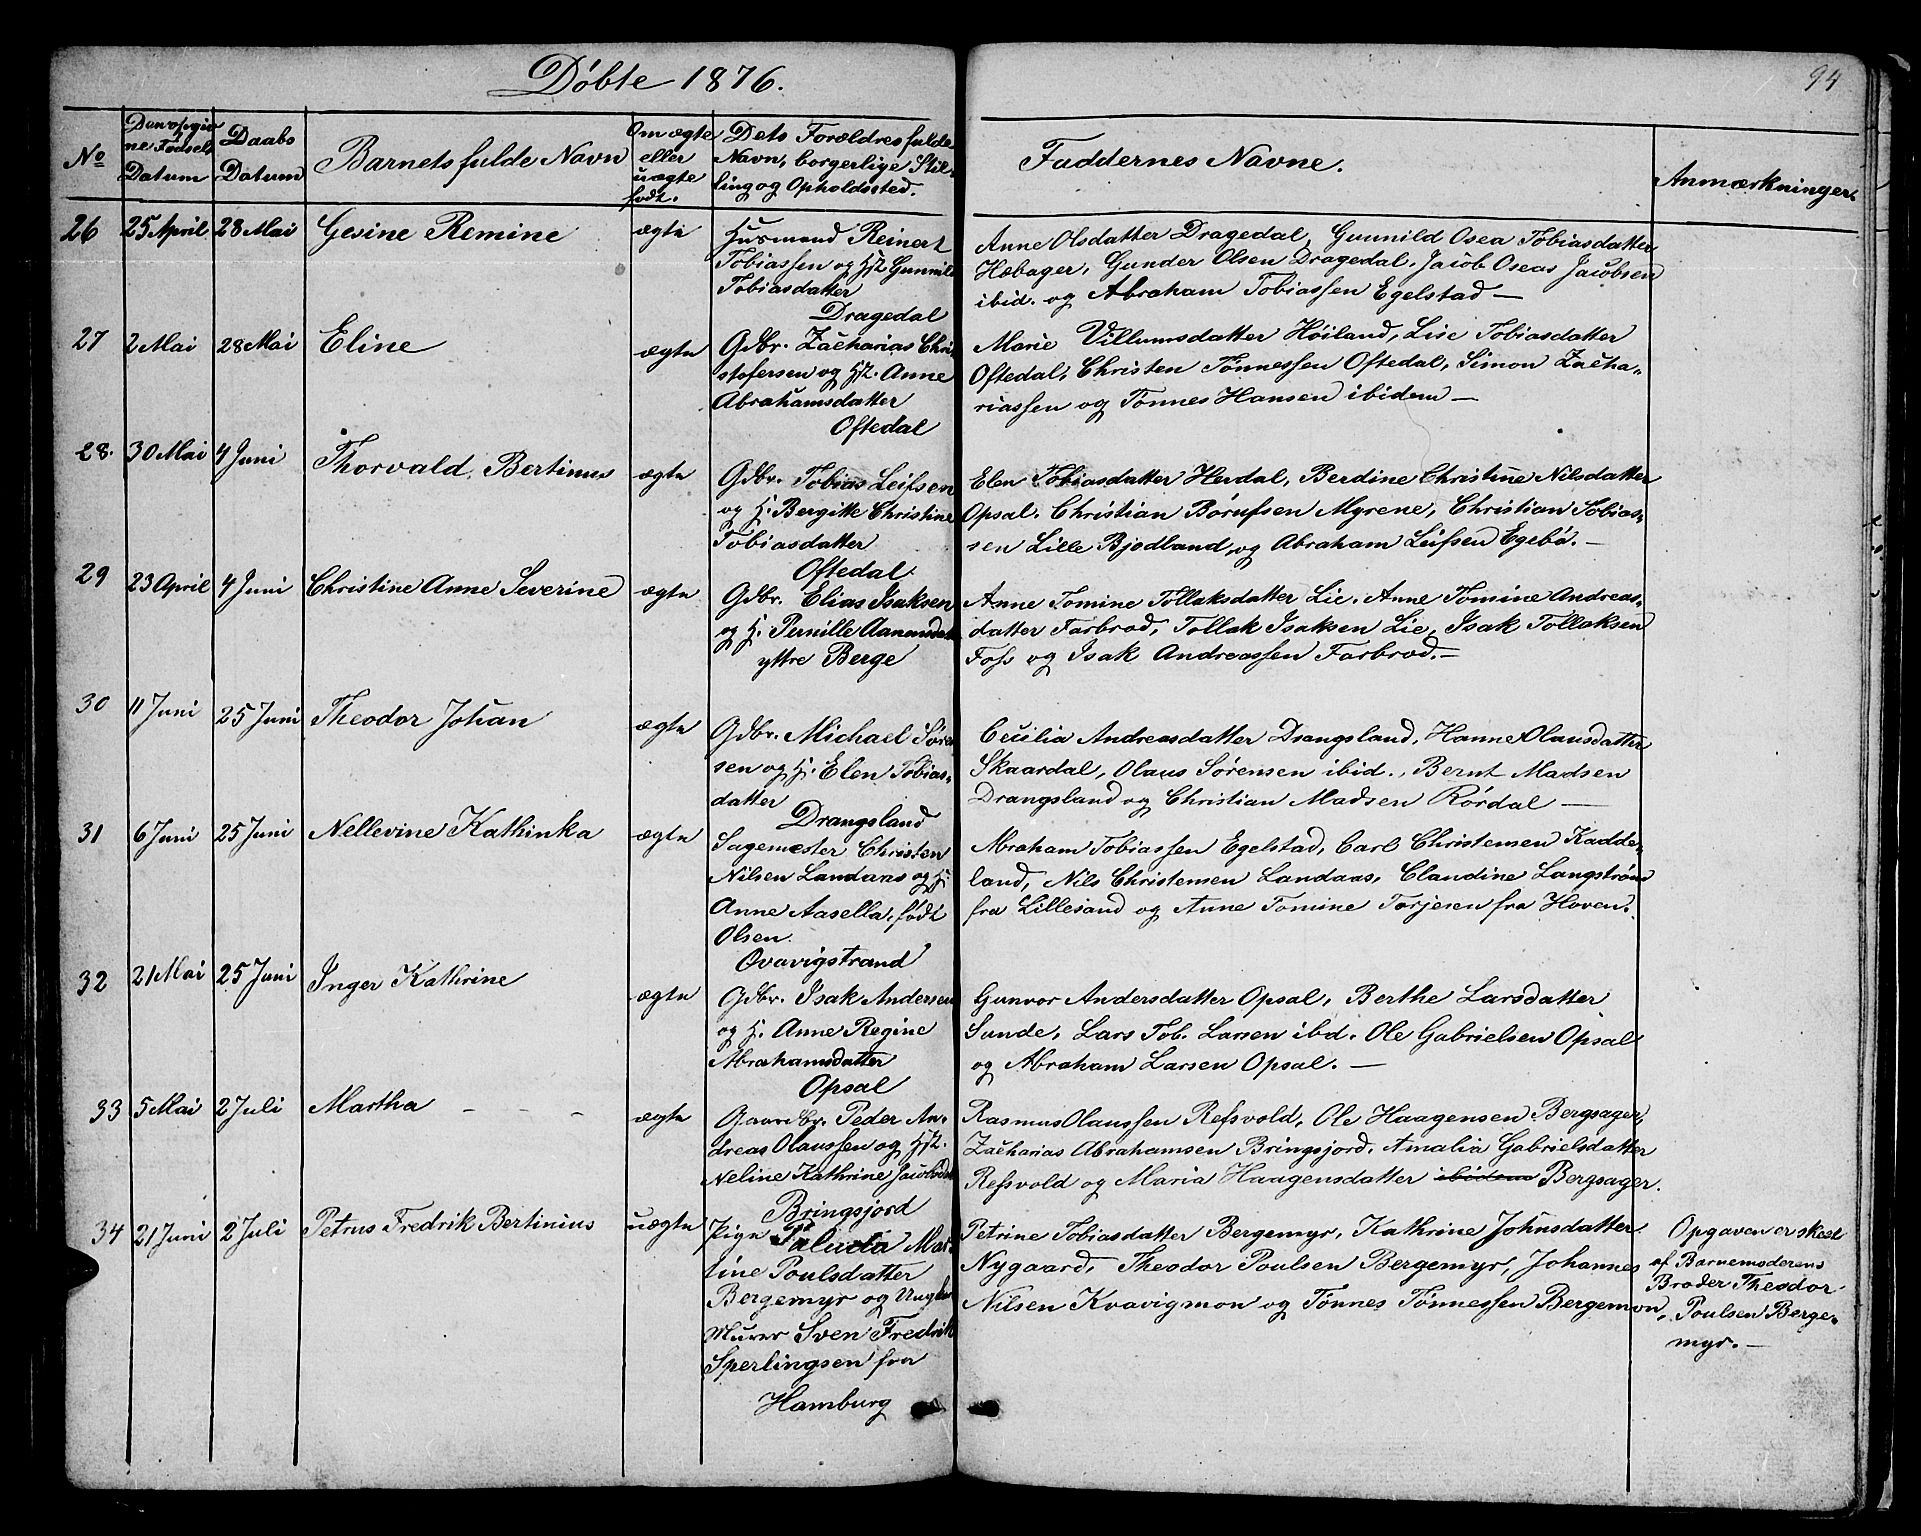 Döbte 1876.
94
No
Den opgiv
ne Födsels
Datum
Daabs
Datum
Barnets fulde Navn
Om ægte
eller
uægte
født.
Dets Forældres fulde
Navn, borgerlige Stil-
ling og Opholdssted.
Faddernes Navne.
Anmærkninger.
26 25 April 28 Mai Gesine Remine ægte
Husmand Reinert
Tobiassen og Hst. Gunnild
Tobiasdatter
Dragedal
Anne Olsdatter Dragedal, Gunnild Osea Tobiasdatter
Hæbager, Gunder Olsen Dragedal, Jacob Oseas Jacobsen
ibid. og Abraham Tobiassen Egelstad —
27 2 Mai 28 Mai Eline ægte
Gdbr. Zacharias Chri
stofersen og Hst. Anne
Abrahamsdatter
Oftedal
Marie Villumsdatter Höiland, Lise Tobiasdatter
Oftedal, Christen Tönnessen Oftedal, Simon Zacha-
riassen og Tönnes Hansen ibidem —
28. 30 Mai 4 Juni Thorvald Bertinus ægte
Gdbr. Tobias Leifsen
og H. Bergitte Christine
Tobiasdatter
Oftedal.
Elen Tobiasdatter Herdal, Berdine Christine Nilsdatter
Opsal, Christian Börufsen Myrene, Christian Tobias-
sen Lille Bjodland, og Abraham Leifsen Egebö. —
29 23 April 4 Juni Christine Anne Severine ægte
Gdbr. Elias Isaksen
og H. Pernille Aanensdatt
yttre Berge
Anne Tomine Tollaksdatter Lie. Anne Tomine Andreas-
datter Farbrod, Tollak Isaksen Lie, Isak Tollaksen
Foss og Isak Andreassen Farbrod. —
30 11 Juni 25 Juni Theodor Johan ægte
Gdbr. Michael Sören
sen og H. Elen Tobias-
datter
Drangsland
Cecilia Andreasdatter Drangsland, Hanne Olausdatter
Skaardal, Olaus Sörensen ibid., Bernt Madsen
Drangsland og Christian Madsen Rördal —
31 6 Juni 25 Juni Nellevine Kathinka ægte
Sagemester Christen
Nilsen Landaas og H.
Anne Aasella, födt
Olsen.
Qvavigstrand
Abraham Tobiassen Egelstad, Carl Christensen Kadde-
land, Nils Christensen Landaas, Clandine Langström
fra Lillesand og Anne Tomine Torjesen fra Hoven.
32 21 Mai 25 Juni Inger Kathrine ægte
Gdbr. Isak Andersen
og H. Anne Regine
Abrahamsdatter
Opsal
Gunvor Andersdatter Opsal, Berthe Larsdatter
Sunde, Lars Tob. Larsen ibd. Ole Gabrielsen Opsal
og Abraham Larsen Opsal. —
33 5 Mai 2 Juli Martha - - - ægte
Gaardbr. Peder An-
dreas Olaussen og Hst.
Neline Kathrine Jacobsdat
Bringsjord
Rasmus Olaussen Refsvold, Ole Haagensen Bergsager,
Zacharias Abrahamsen Bringsjord, Amalia Gabrielsdatter
Refsvold og Maria Haagensdatter ibidem Bergsager.
34 21 Juni 2 Juli Petrus Fredrik Bertinius uægte
Pige Taluda Mar-
tine Poulsdatter
Bergemyr og Ungkar
Murer Sven Fredrik
Sperlingsen fra
Hamburg
Petrine Tobiasdatter Bergemyr, Kathrine Johnsdatter
Nygaard, Theodor Poulsen Bergemyr, Johannes
Nilsen Kvavigmon og Tönnes Tönnessen Bergemon,
Opgaven er skeet
af Barnemoderens
Broder Theodor
Poulsen Berge-
myr. —